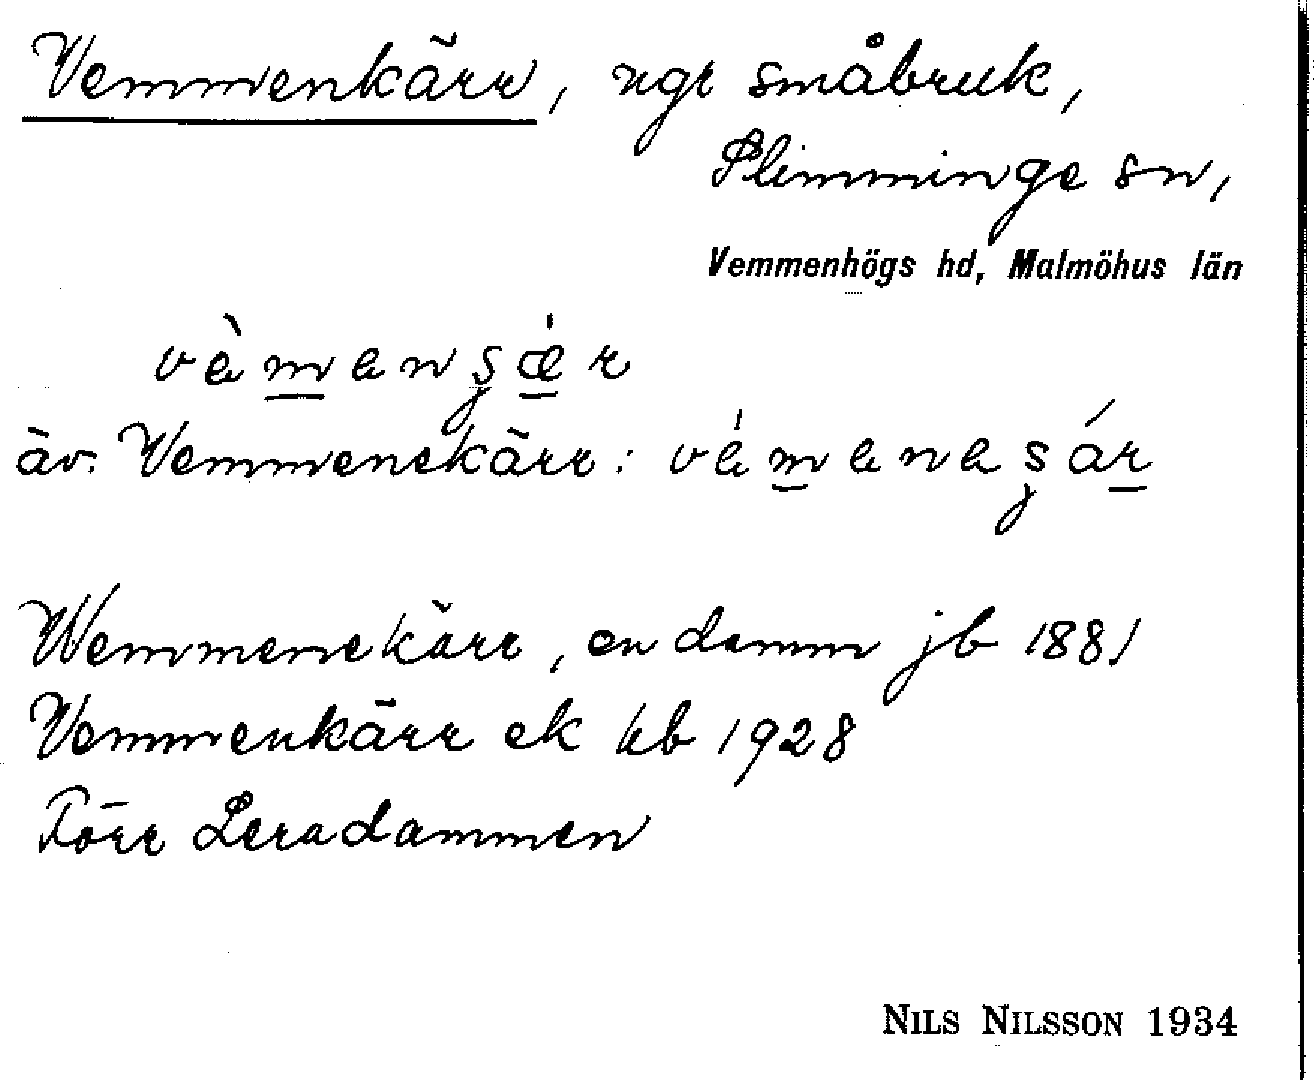 Vemmenkärr, ngr småbruk,
Slimminge sn,
Vemmenhögs hd, Malmöhus län
äv. Vemmenekärr:
Wemmenekärr, en damm jb 1881
Vemmenkärr ek kb 1928
Förr Leradammen
NILS NILSSON 1934